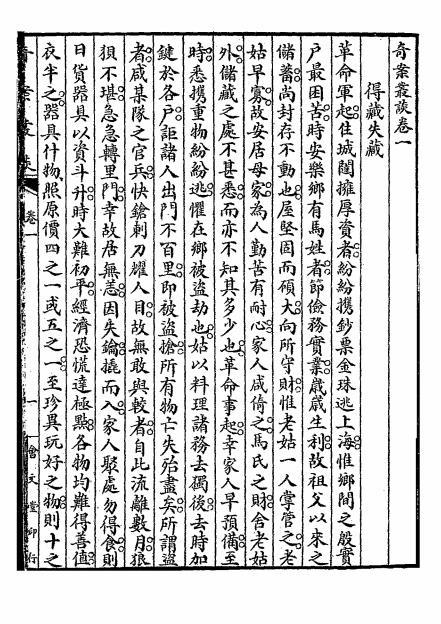 奇案叢談卷一
得藏失藏
革命軍起住城闉擁厚資者紛紛攜鈔票金珠逃上海惟鄉間之殷實
戶最困苦時安樂鄉有馬姓者節儉務實業歲歲生利故祖父以來之
儲蓄尚封存不動也屋堅固而碩大向所守財惟老姑一人掌管之老
姑早寡故安居母家為人勤苦有耐心家人咸倚之馬氏之財舍老姑
外儲藏之處不甚悉而亦不知其多少也革命事起幸家人早預備至
時悉攜重物紛紛逃懼在鄉被盜劫也姑以料理諸務去獨後去時加
鍵於各戶詎諸人出門不百里即被盜搶所有物亡失殆盡矣所謂盜
者咸某隊之官兵快鎗刺刀耀人目故無敢與較者自此流離數月狼
狽不堪急急轉里門幸故居無恙因失鑰撬而入家人聚處勿得食則
日貨器具以資斗升時大難初平經濟恐慌達極點各物均難得善值
衣半之器具什物照原價四之一或五之一至珍異玩好之物則十之
卷一
一
會文堂印行